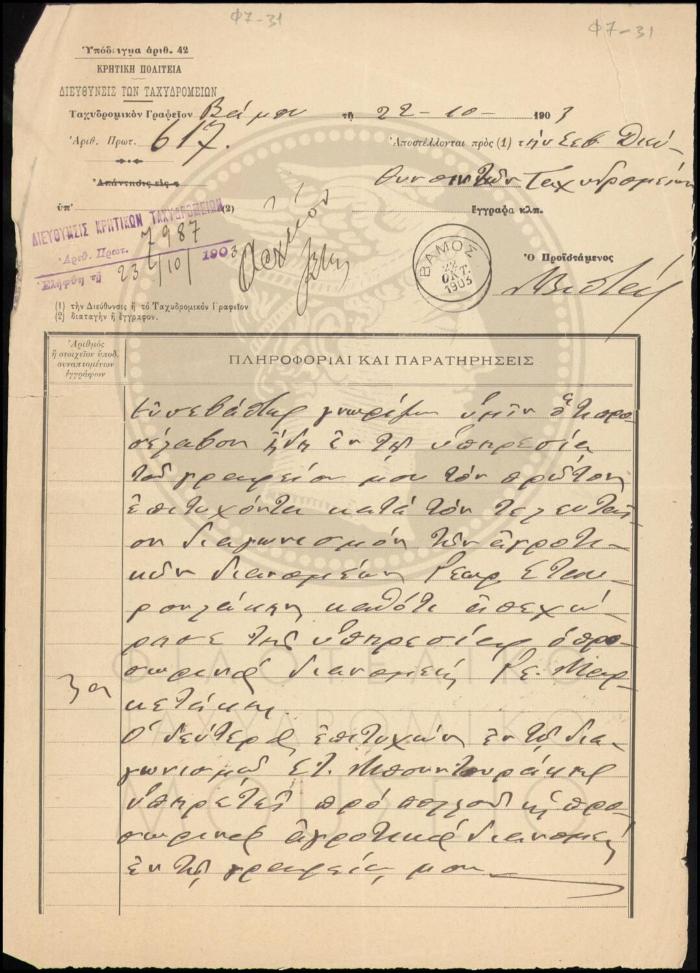 Φ7-31
Φ7-31
Ὑπόδειγμα ἀριθ. 42
ΚΡΗΤΙΚΗ ΠΟΛΙΤΕΙΑ
ΔΙΕΥΘΥΝΣΙΣ ΤΩΝ ΤΑΧΥΔΡΟΜΕΙΩΝ
Ταχυδρομικὸν Γραφεῖον Βάμου τῇ 22-10-1903
Ἀριθ. Πρωτ. 617.
Ἀποστέλλονται πρὸς (1) τὴν Σεβ. Διεύ
θυνσιν τῶν Ταχυδρομείων
Ἀπάντησις εἰς
ὑπ' (2)
ἔγγραφα κλπ.
ΔΙΕΥΘΥΝΣΙΣ ΚΡΗΤΙΚΩΝ ΤΑΧΥΔΡΟΜΕΙΩΝ
Ἀριθ. Πρωτ. 7987
Ἐλήφθη τῇ 23/10/1903
Ἀρχεῖον
ΒΑΜΟΣ
22
ΟΚΤ.
1903
Ὁ Προϊστάμενος
(1) τὴν Διεύθυνσιν ἢ τὸ Ταχυδρομικὸν Γραφεῖον
(2) διαταγὴν ἢ ἔγγραφον.
Ἀριθμὸς
ἢ στοιχεῖον ὑποβ.
συναπτομένων
ἐγγράφων
ΠΛΗΡΟΦΟΡΙΑΙ ΚΑΙ ΠΑΡΑΤΗΡΗΣΕΙΣ
Εὐσεβάστως γνωρίζω ὑμῖν ὅτι προ
σέλαβον ἤδη ἐν τῇ ὑπηρεσίᾳ
τοῦ γραφείου μου τὸν πρῶτον
ἐπιτυχόντα κατὰ τὸν τελευταῖ-
ον διαγωνισμὸν τῶν ἀγροτι-
κῶν διανομέων Γεωρ. Σταυ-
ρουλάκην καθότι ἀπεχώ-
ρησε τῆς ὑπηρεσίας ὁ προ
σωρινὸς διανομεὺς Γε. Μαρ-
κετάκης.
Ὁ δεύτερος ἐπιτυχὼν ἐν τῷ δια-
γωνισμῷ Στ. Μπουντουράκης
ὑπηρετεῖ πρὸ πολλοῦ ὡς προ-
σωρινὸς ἀγροτικὸς διανομεὺς
ἐν τῷ γραφείῳ μου
ΦΙΛΟΤΕΛΙΚΟ
ΤΑΧΥΔΡΟΜΙΚΟ
ΜΟΥΣΕΙΟ